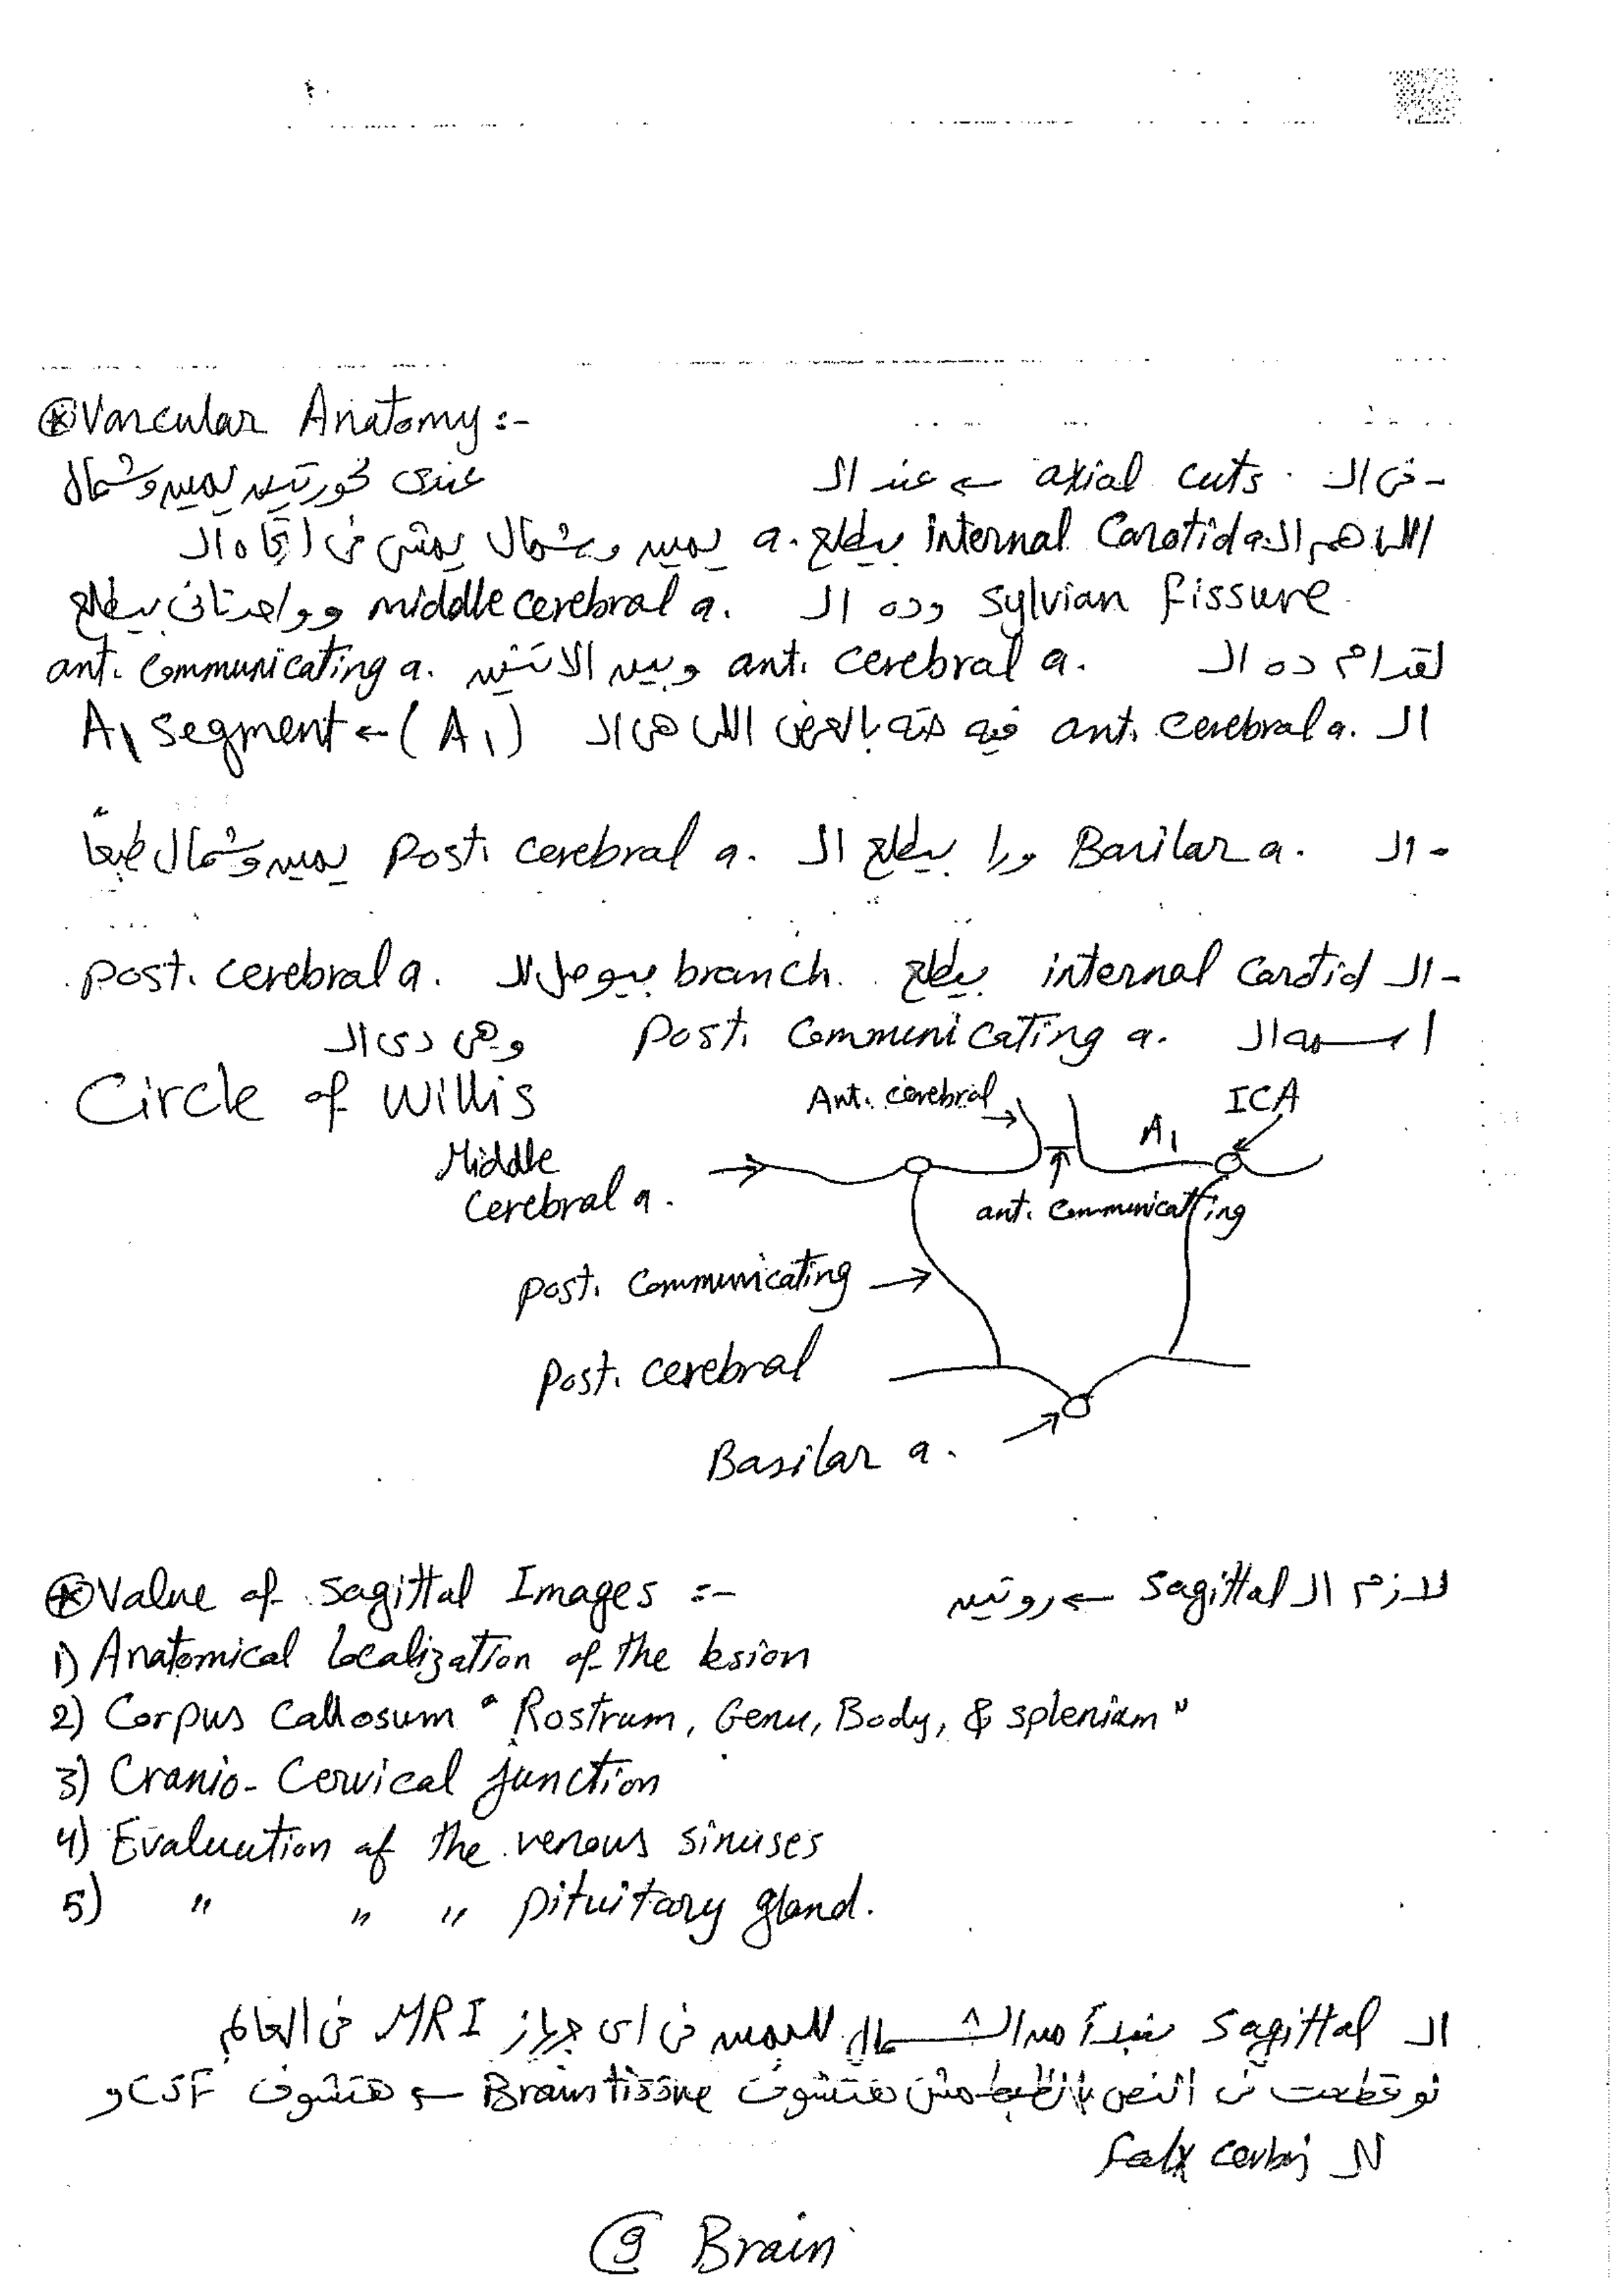 ⊛ Vascular Anatomy :-
- فى ال axial cuts ← عند ال عندى نقورتين يمين وشمال
اللى هم ال internal Carotid a. بيطلع a. يمين وشمال يمشى فى اتجاه ال
sylvian fissure وده ال middle cerebral a. وواحد تانى بيطلع
لقدام ده ال ant. cerebral a. وبين الاتنين ant. communicating a.
ال ant. cerebral a. فيه حته بالعرض اللى هى ال (A1) ← A1 segment
- ال Basilar a. ورا بيطلع ال Post. cerebral a. يمين وشمال طبعاً
- ال internal carotid بيطلع branch بيوصل لل post. cerebral a.
اسمه ال Post. Communicating a. وهى دى ال
Circle of Willis
Ant. cerebral
ICA
A1
Middle
Cerebral a.
ant. Communicatting
Post. Communicating
Post. cerebral
Basilar a.
⊛ Value of Sagittal Images :- لازم ال Sagittal ← روتين
1) Anatomical Localization of the lesion
2) Corpus Callosum " Rostrum, Genu, Body, & splenium "
3) Cranio-Cervical junction
4) Evaluation of the venous sinuses
5) " " " pituitary gland.
ال Sagittal نبدأ من الشمال لليمين فى اى جهاز MRI فى العالم
لو قطعت فى النص بالظبط مش هتشوف Brain tissue ← هتشوف CSF و
ال falx cerbri
9 Brain